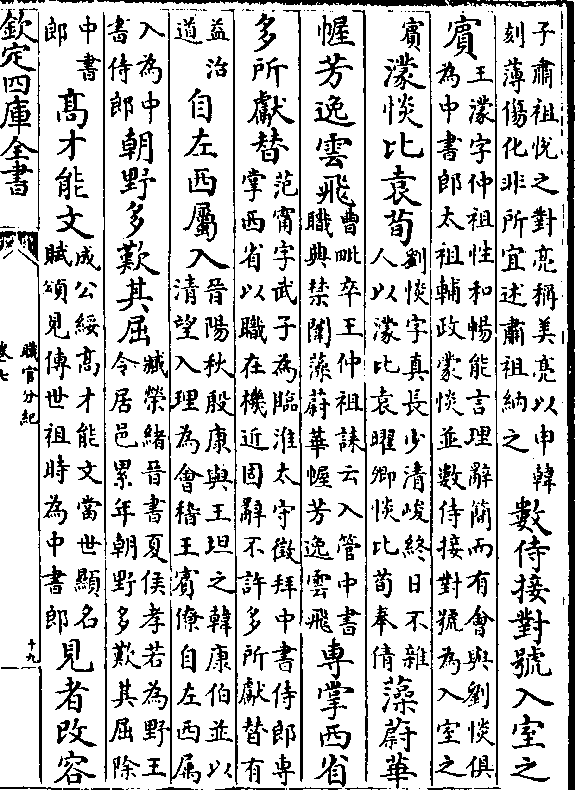 子肅祖悅之對亮稱美亮以申韓
刻薄傷化非所宜述肅祖納之
數侍接對號入室之
賓
王濛字仲祖性和暢能言理辭簡而有會與劉惔俱
為中書郎太祖輔政蒙惔並數侍接對號為入室之
賓
濛惔比袁荀
劉惔字真長少清峻終日不雜
人以濛比袁曜卿惔比荀奉倩
藻蔚華
幄芳逸雲飛
曹毗卒王仲祖誄云入管中書
職典禁闈藻蔚華幄芳逸雲飛
專掌西省
多所獻替
范甯字武子為臨淮太守徵拜中書侍郎專
掌西省以職在機近固辭不許多所獻替有
益治
道
自左西屬入
晉陽秋殷康與王坦之韓康伯並以
清望入理為會稽王賓僚自左西属
入為中
書侍郎
朝野多歎其屈
臧榮緒晉書夏侯孝若為野王
令居邑累年朝野多歎其屈除
中書
郎
髙才能文
成公綏髙才能文當世顯名
賦頌見傳世祖時為中書郎
見者改容
欽定四庫全書
職官分紀
卷七
十九